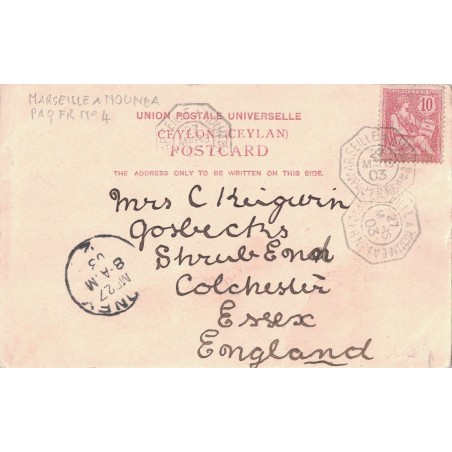 MARSEILLE A NOUMEA
PAQ FR No. 4
UNION POSTALE UNIVERSELLE
CEYLON (CEYLAN)
POSTCARD
THE ADDRESS ONLY TO BE WRITTEN ON THIS SIDE.
10
03
27
03
Mrs C Keigwin
Gosbecks
Shrub End
Colchester
Essex
England
8 A.M
27
03